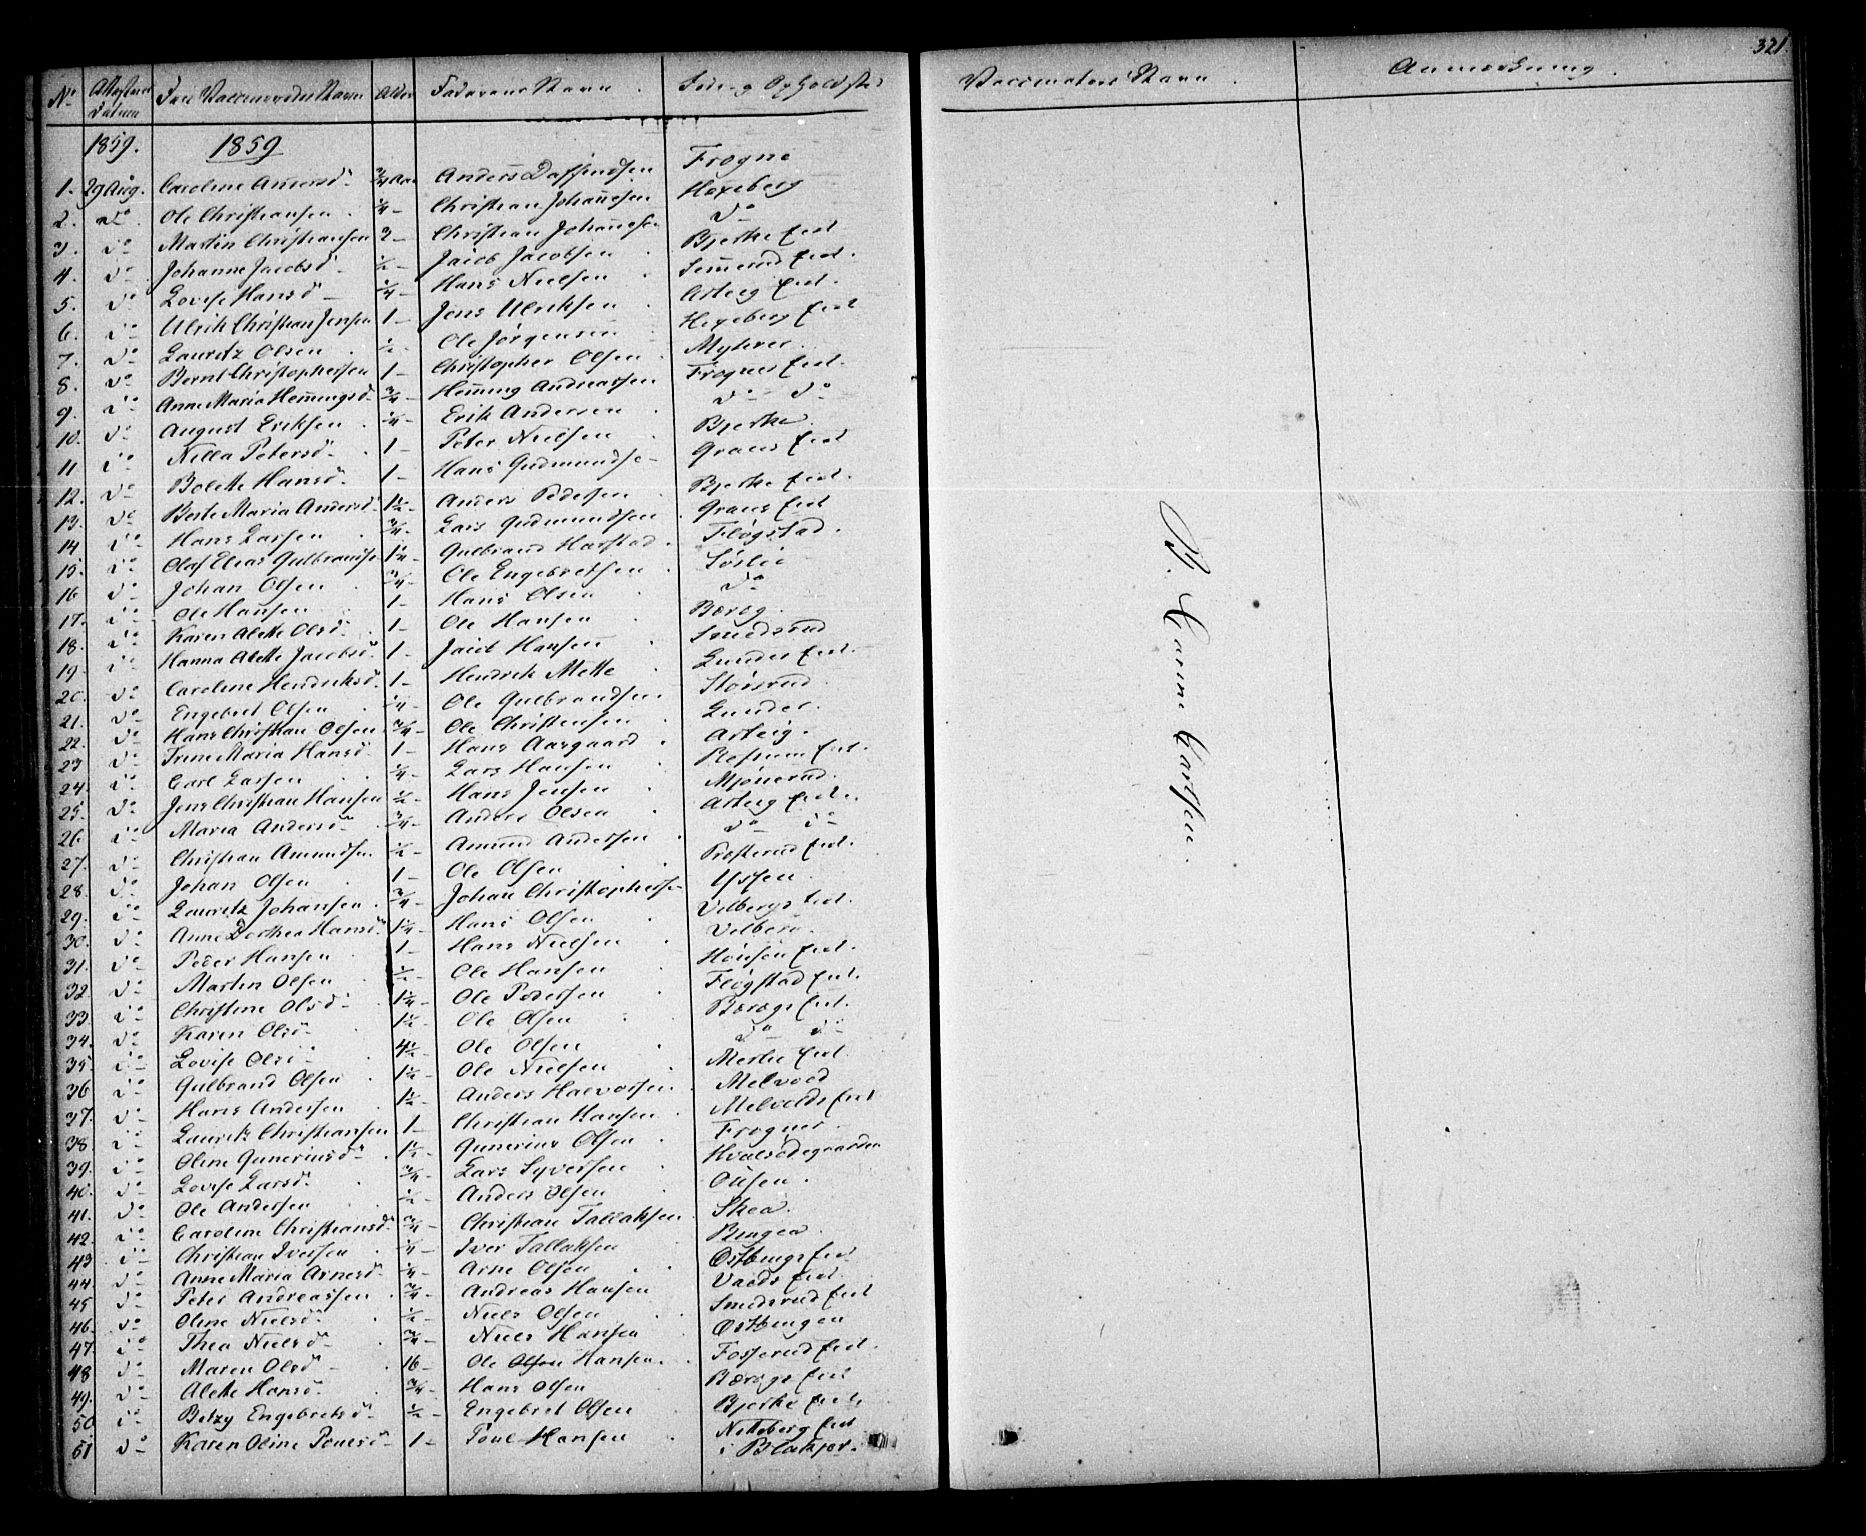 321
No Attestens Datum Den Vaccineredes Navn Alder Faderens Navn Føde- og Opholdsste Vaccinateurs Navn Anmærkning
1859. 1859
1. 29 Aug. Caroline Andersd 3/4 Aar Anders Daffindsen Frogne
2. do Ole Christiansen 1/4 - Christian Johannesen Hexeberg
3. do Martin Christiansen 3 - Christian Johannesen do
4. do Johanne Jacobsd 1/2 - Jacob Jacobsen Bjerke Eiet
5. do Lovise Hansd 1/4 - Hans Nielsen Eiet.
6. do Ulrik Christian Jensen 1 - Jens Ulriksen Asteig Eiet.
7. do Lauritz Olsen 1/2 - Ole Jörgensen Hexeberg Eiet
8. do Bernt Christophersen 1 - Christopher Olsen Myhrer.
9. do Anne Maria Hemmingsd 3/4 - Hemming Andreassen Frogner Eiet.
10. do August Eriksen 1/4 - Erik Andersen do do
11 do Nilla Petersd 1 - Peter Nielsen Bjerke.
12. do Bolette Hansd 1 - Hans Gudmundse- Eiet
13. do Berte Maria Andersd 1 1/2 - Anders Pedersen Bjerke Eiet.
14 do Hans Larsen 3/4 - Lars Gudmundsen Eiet
15. do Olaf Elias Gulbrandse 1 1/4 - Gulbrand Harstad Flögstad.
16 do Johan Olsen 3/4 - Ole Engebretsen Sörlie
17. do Ole Hansen 1 - Hans Olsen do
18. do Karen Alette Olsd 1 - Ole Hansen Bærøg.
19. do Hanna Alette Jacobsd 1 - Jacob Hansen Smedsrud
20. do Caroline Hendriksd. 1 - Hendrik Mette Lunder Eiet.
21. do Engebret Olsen 1/4 - Ole Gulbrandsen Störsrud
22. do Hans Christian Olsen 3/4 - Ole Christensen Lunder.
23 do Trine Maria Hansd 1 - Hans Aasgaard Asteig.
24. do Carl Larsen 1/4 - Lars Hansen Eiet.
25. do Jens Christian Hansen 1/2 - Hans Jensen Mjönerud.
26. do Maria Andersd 3/4 - Anders Olsen Asteig Eiet.
27. do Christian Amundsen 1/2 - Amund Andersen do do
28. do Johan Olsen 1 - Ole Olsen Presterud Eiet.
29. do Lauritz Johansen 3/4 - Johan Christopherse-
30. do Anne Dorthea Hansd 1 1/4 - Hans Olsen Vilbergs Eiet.
31. do Peder Hansen 1 - Hans Nielsen Vilberg.
32. do Martin Olsen 1/2 - Ole Hansen Eiet
33. do Christine Olsd 1 1/4 - Ole Pedersen Flögstad Eiet.
34. do Karen Olsd 1 1/2 - Ole Olsen Bærøgs Eiet.
35. do Lovise Olsd 4 1/2 - Ole Olsen do do
36 do Gulbrand Olsen 1 1/2 - Ole Nielsen Merlie Eiet.
37. do Hans Andersen 1 1/2 - Anders Halvorsen Melvold
38 do Lauritz Christiansen 1 - Christian Hansen Melvolds Eiet
39. do Oline Gunnerusd 1 1/2 - Gunerius Olsen Frogner.
40. do Lovise Larsd 3/4 - Lars Syversen Hvalsödegaarden
41. do Ole Andersen 1/2 - Anders Olsen
42. do Caroline Christiansd 3/4 - Christian Tallaksen Skea.
43 do Christian Iversen 1/4 - Iver Tallaksen Bingen
44 do Anne Maria Arnesd 1/4 - Arne Olsen Østbyngs Eiet
45 do Peter Andreassen 3/4 - Andreas Hansen Eiet.
46. do Oline Nielsd 1/2 - Niels Olsen Smedsrud Eiet
47. do Thea Nielsd 3/4 - Niels Hansen Østbyngen
48 do Maren Olsd 16 - Ole Olsen Hansen. Fosserud Eiet.
49. do Alette Hansd 3/4 - Hans Olsen Bærøgs Eiet
50 do Betzy Engebretsd 1/2 - Engebret Olsen Bjerke Eiet.
51 do Karen Oline Poulsd 1 - Poul Hansen Nitteberg Eiet
i Blakjer.
Carine Carlsen.